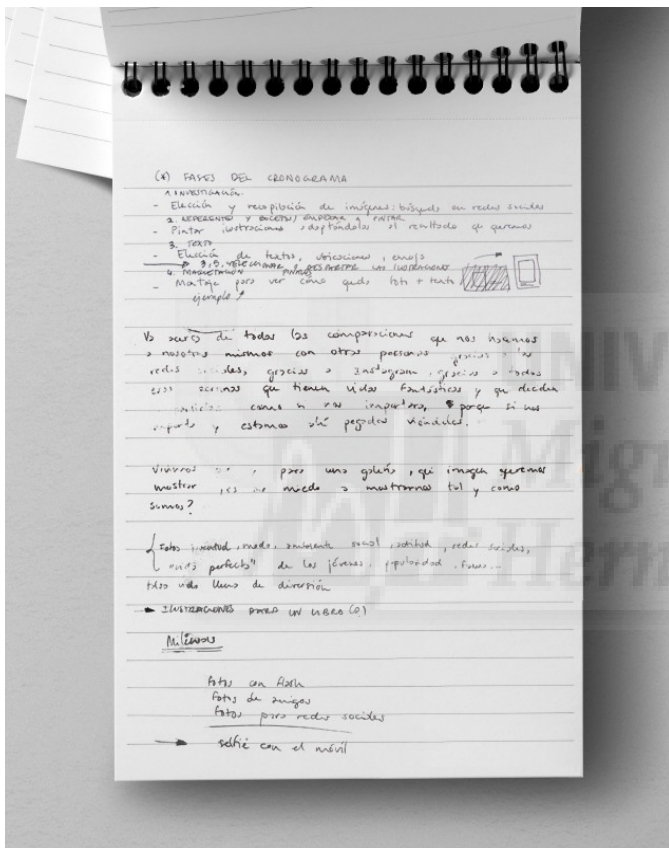 (*) FASES DEL CRONOGRAMA
1. INVESTIGACIÓN.
- Elección y recopilación de imágenes: búsqueda en redes sociales
2. REFERENTES Y BOCETOS/ EMPEZAR A PINTAR
- Pintar ilustraciones adaptándolas al resultado que queremos
3. TEXTO
- Elección de textos, ubicaciones,
3,5. SELECCIONAR Y DESCARTAR LAS ILUSTRACIONES
4. MAQUETACIÓN
- Montaje para ver como queda foto + texto
ejemplo
Va acerca de todas las comparaciones que nos hacemos
a nosotros mismos con otras personas gracias a las
redes sociales, gracias a Instagram, gracias a todas
esas personas que tienen vidas fantásticas y que deciden
como si nos importara, porque si nos
importa y estamos ahí pegados viéndoles.
Vivimos para una galería, qué imagen queremos
mostrar miedo a mostrarnos tal y como
somos?
Fotos juventud, moda, ambiente social, actitud, redes sociales,
perfecta" de los jóvenes, popularidad,
falsa vida llena de diversión
ILUSTRACIONES PARA UN LIBRO (?)
fotos con flash
fotos de amigos
fotos para redes sociales
selfie con el móvil
UNIV
Migu
Hern